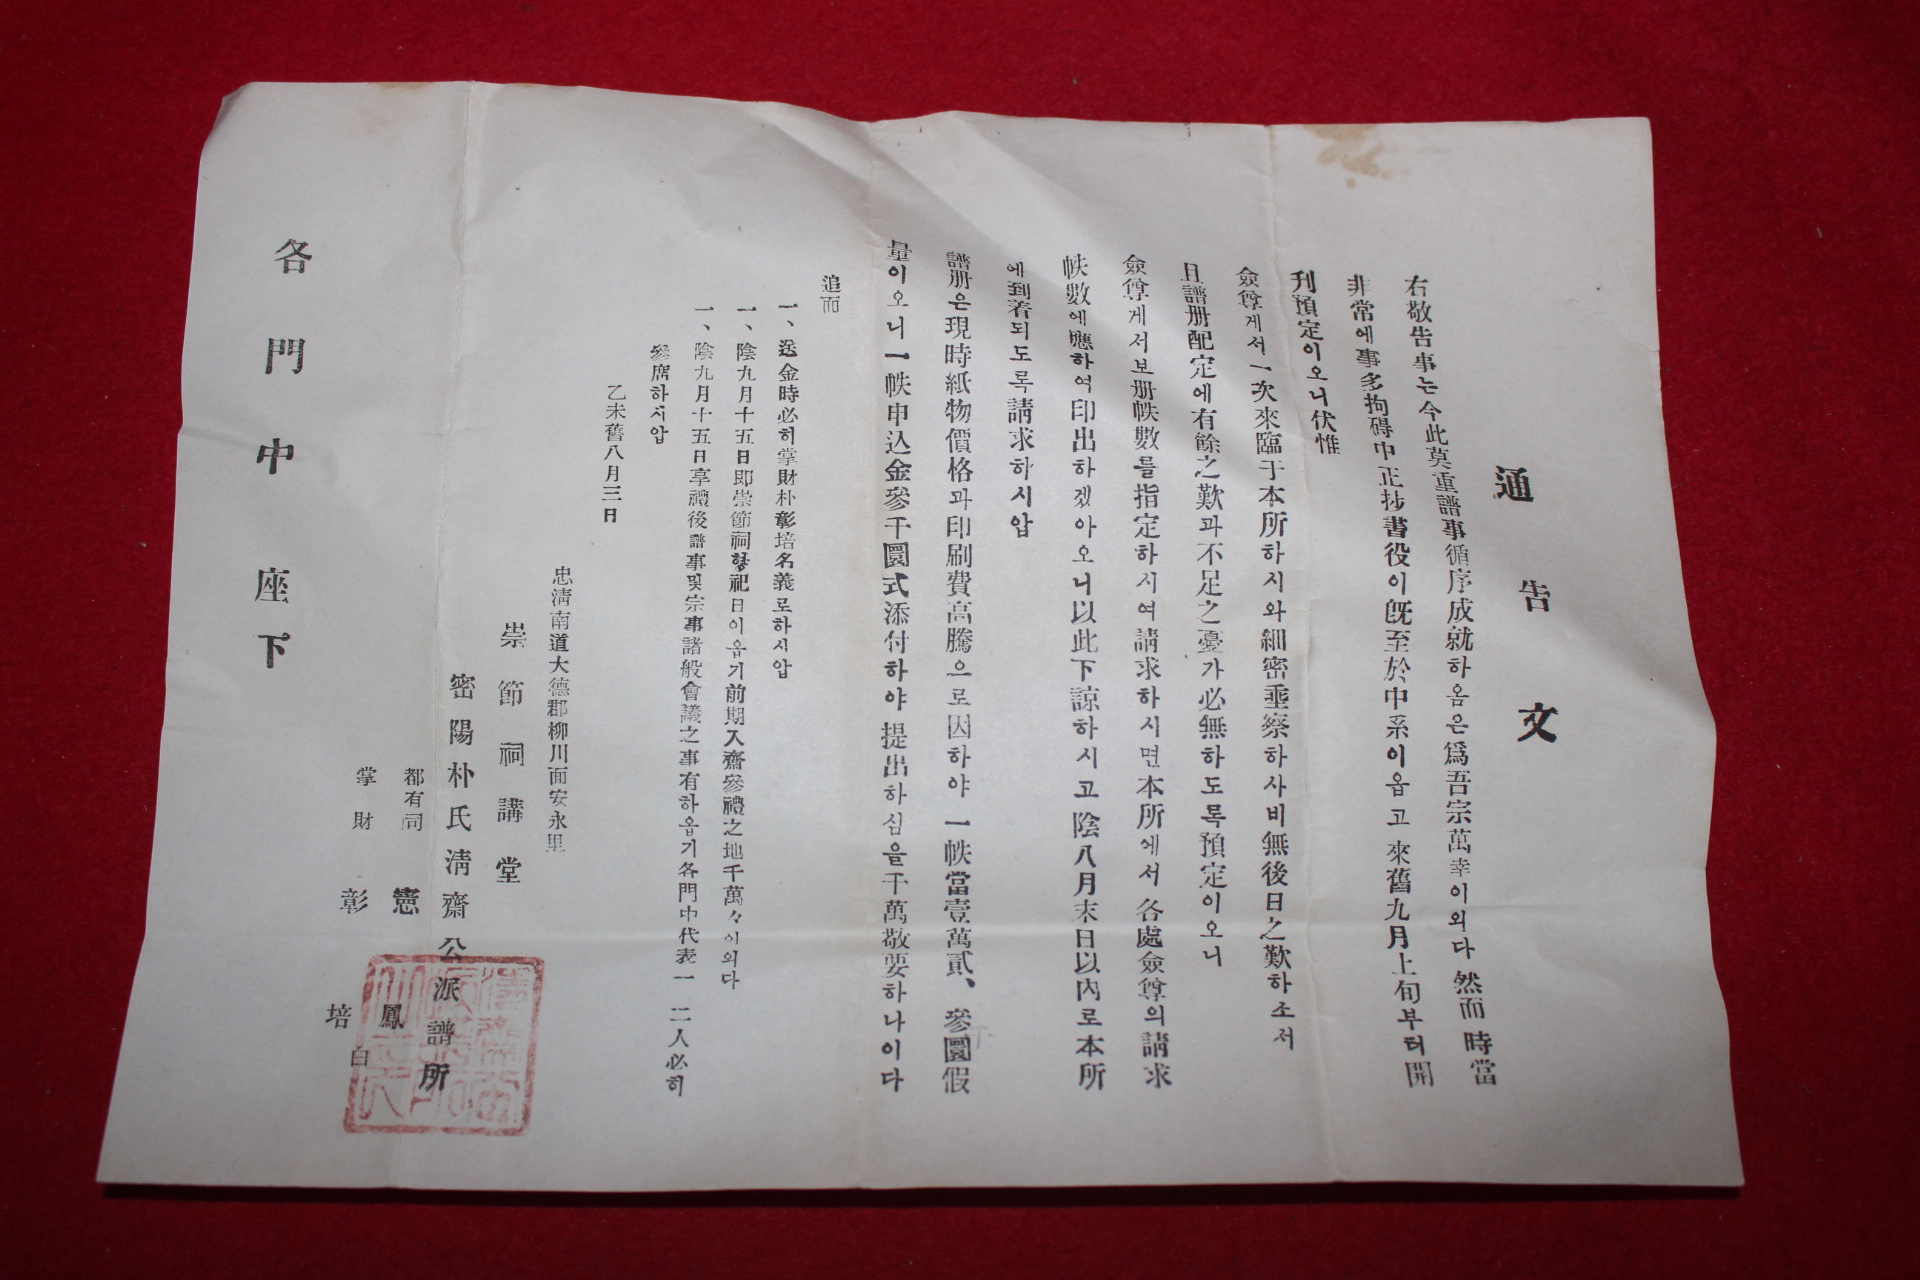 通告文
右敬告事는今此莫重譜事循序成就하옴은爲吾宗萬幸이외다 然而 時當
非常에事多拘碍中正抄書役이旣至於中系이옵고 來舊九月上旬부터開
刊預定이오니伏惟
僉尊게서一次來臨于本所하시와細密垂察하사비無後日之歎하소서
且譜册配定에有餘之歎과不足之憂가必無하도록預定이오니
僉尊게서보册帙數를指定하시여請求하시면本所에서各處僉尊의請求
帙數에應하여印出하겠아오니以此下諒하시고陰八月末日以內로本所
에到着되도록請求하시압
譜册은現時紙物價格과印刷費高騰으로因하야一帙當壹萬貳、參圜假
量이오니一帙申込金參千圜式添付하야提出하심을千萬敬要하나이다
追而
一、送金時必히掌財朴彰培名義로하시압
一、陰九月十五日即崇節祠향祀日이옵기前期入齋參禮之地千萬々이외다
一、陰九月十五日享禮後譜事및宗事諸般會議之事有하옵기各門中代表一 二人必히
參席하시압
乙未舊八月三日
忠淸南道大德郡柳川面安永里
崇節祠講堂
密陽朴氏淸齋公派譜所
都有司 憲鳳
掌財 彰培
白
各門中座下